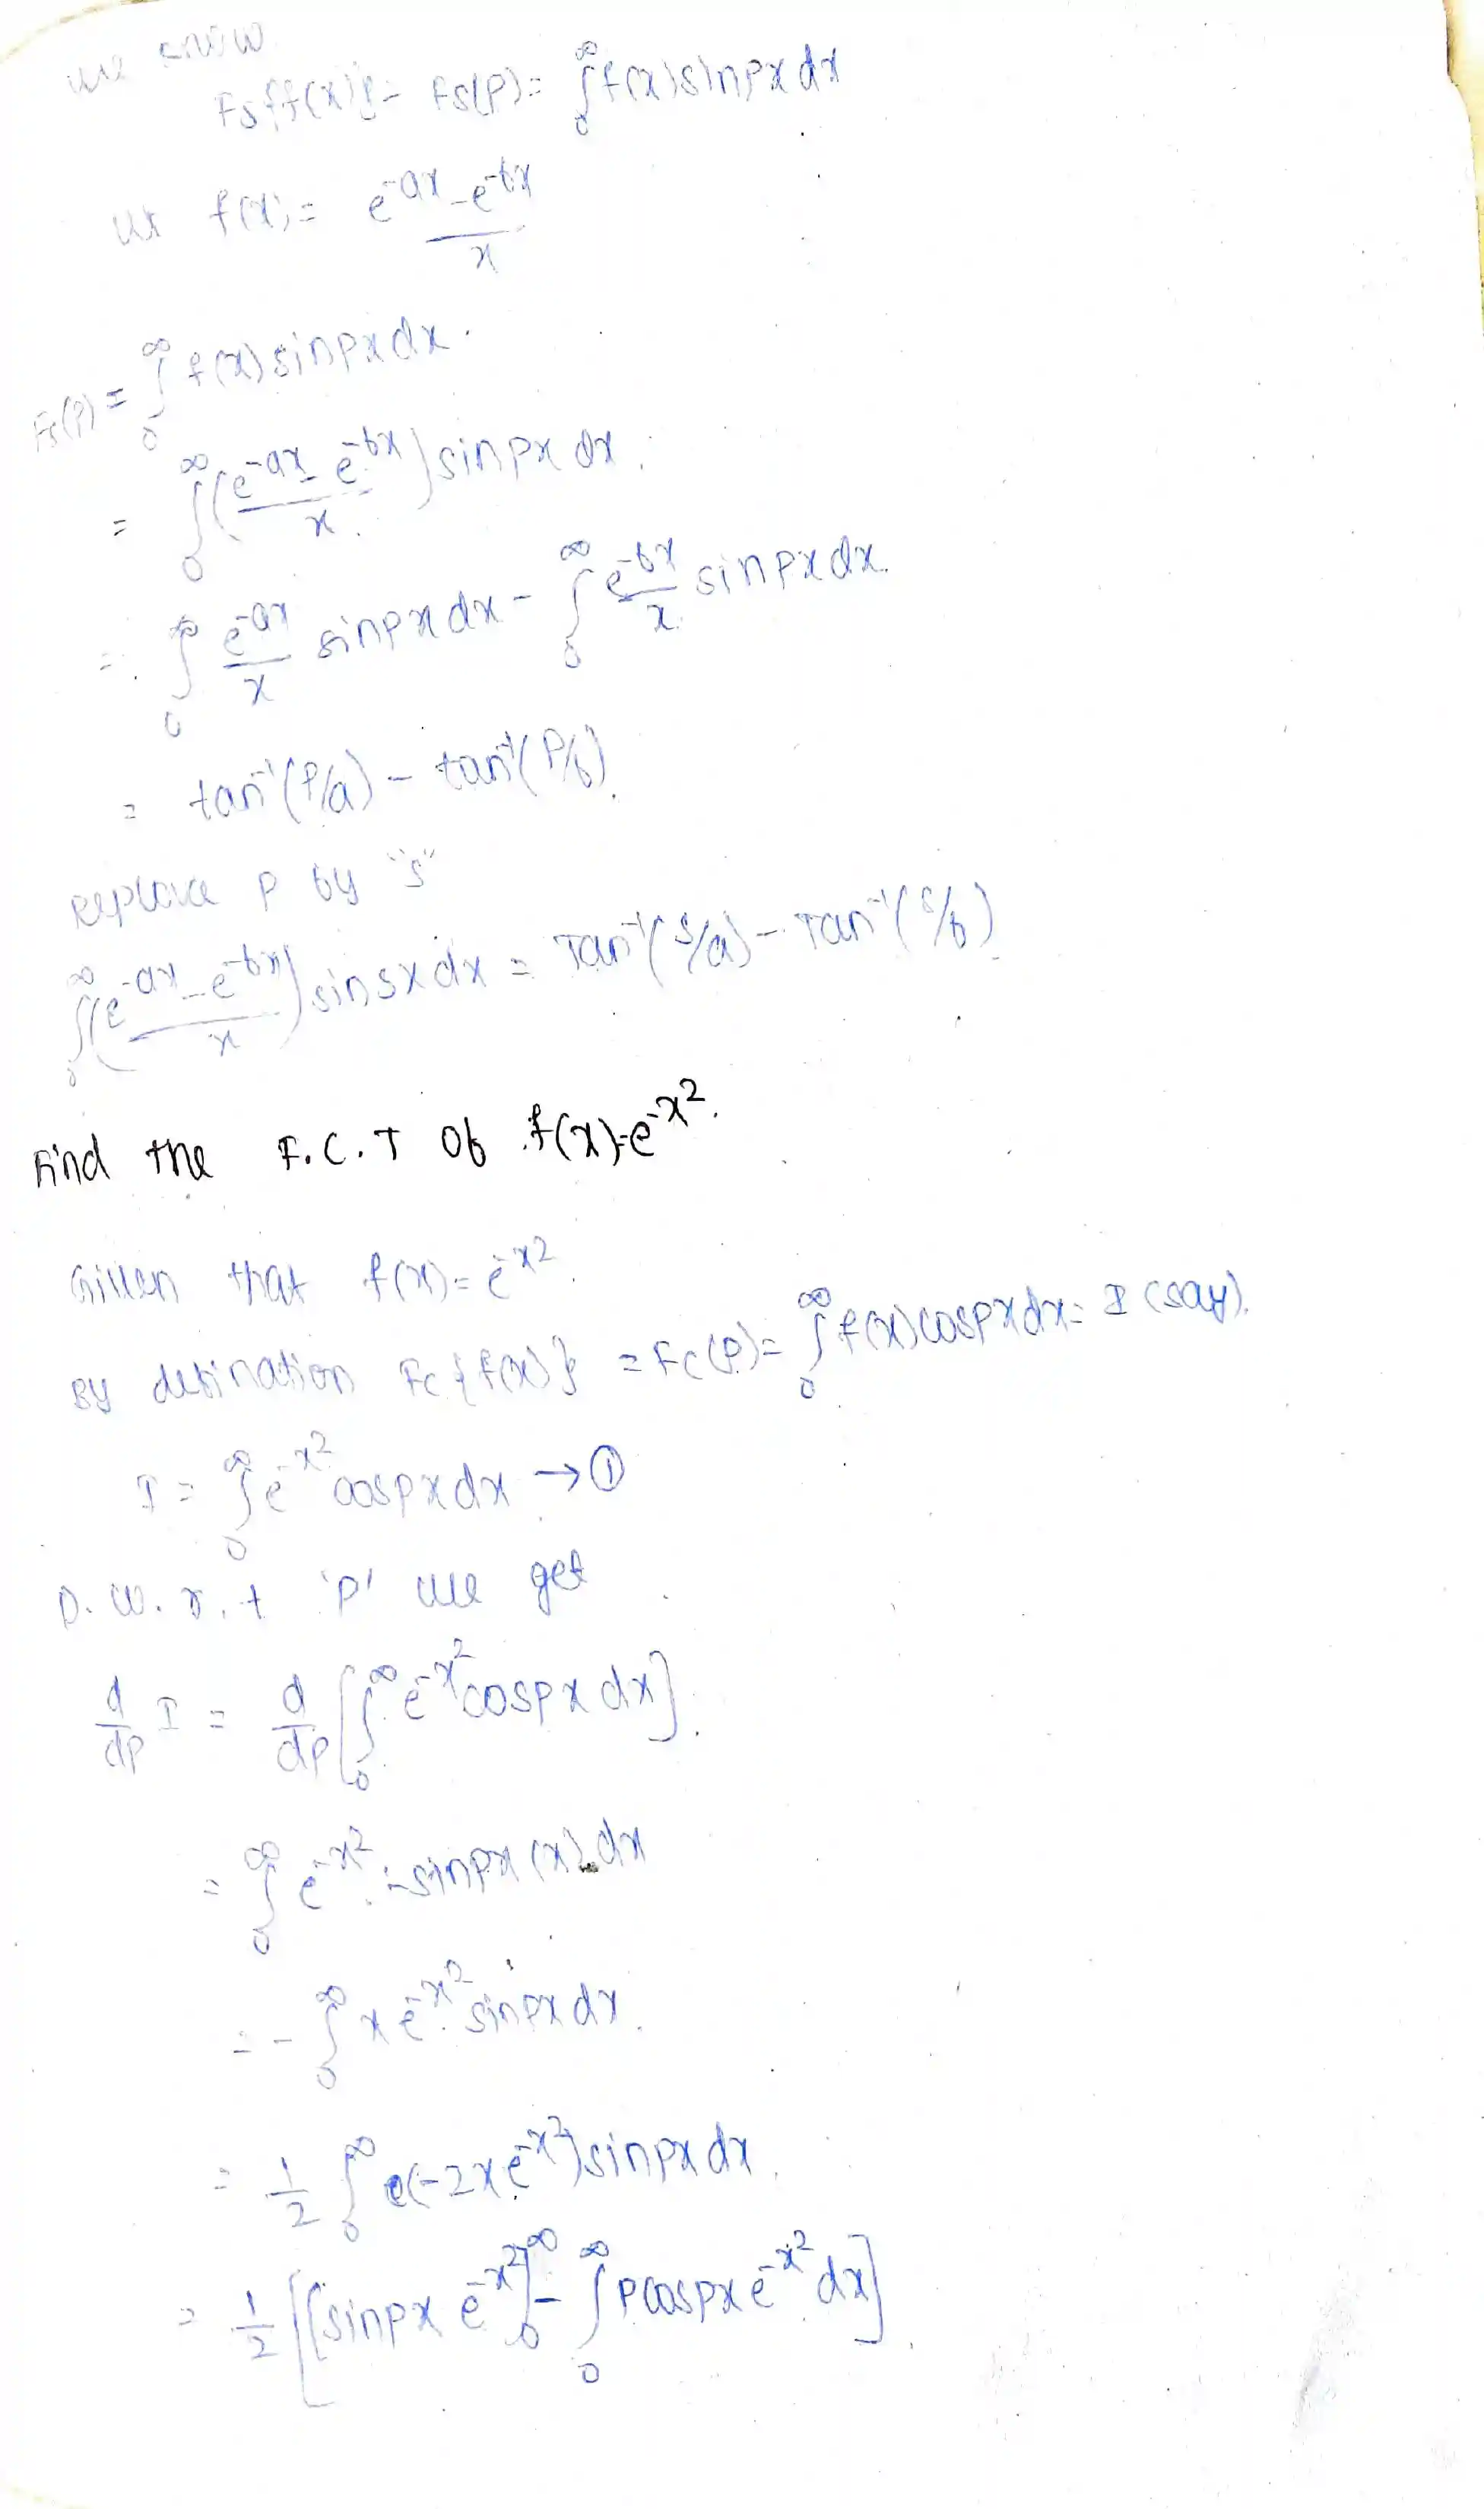 we know
Fs{f(x)} = Fs(P) = ∫₀^∞ f(x) sinpx dx
let f(x) = (e^-ax - e^-bx)/x
Fs(P) = ∫₀^∞ f(x) sinpx dx.
= ∫₀^∞ ((e^-ax - e^-bx)/x) sinpx dx.
= ∫₀^∞ (e^-ax/x) sinpx dx - ∫₀^∞ (e^-bx/x) sinpx dx.
= tan⁻¹(P/a) - tan⁻¹(P/b).
Replace P by "s"
∫₀^∞ ((e^-ax - e^-bx)/x) sinsx dx = Tan⁻¹(s/a) - Tan⁻¹(s/b)
Find the F.C.T of f(x)=e^-x².
Given that f(x) = e^-x².
By defination Fc{f(x)} = Fc(P) = ∫₀^∞ f(x) cospx dx = I (say).
I = ∫₀^∞ e^-x² cospx dx → ①
D.W.r.t 'p' we get
d/dp I = d/dp [∫₀^∞ e^-x² cospx dx].
= ∫₀^∞ e^-x² . -sinpx (x) dx
= - ∫₀^∞ x e^-x² sinpx dx.
= 1/2 ∫₀^∞ e(-2x e^-x²) sinpx dx.
= 1/2 [(sinpx e^-x²)₀^∞ - ∫₀^∞ P cospx e^-x² dx].